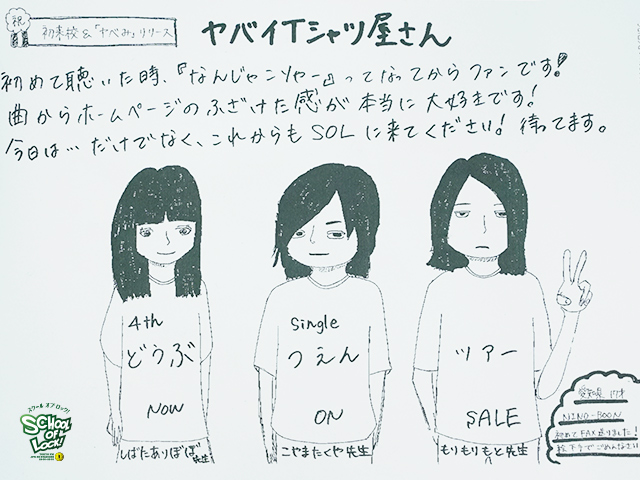 祝
初来校&「ヤベみ」リリース
ヤバイTシャツ屋さん
初めて聴いた時、『なんじゃこりゃー』ってなってからファンです!
曲からホームページのふざけた感が本当に大好きです!
今日は…だけでなく、これからもSOLに来てください!待ってます。
4th
どうぶ
NOW
Single
つえん
ON
ツアー
SALE
しばたありぼぼ先生
こやまたくや先生
もりもりもと先生
愛知県 17才
NINO-BOON
初めてFAX送りました!
絵下手でごめんなさい
スクール オブ ロック!
SCHOOL OF LOCK!